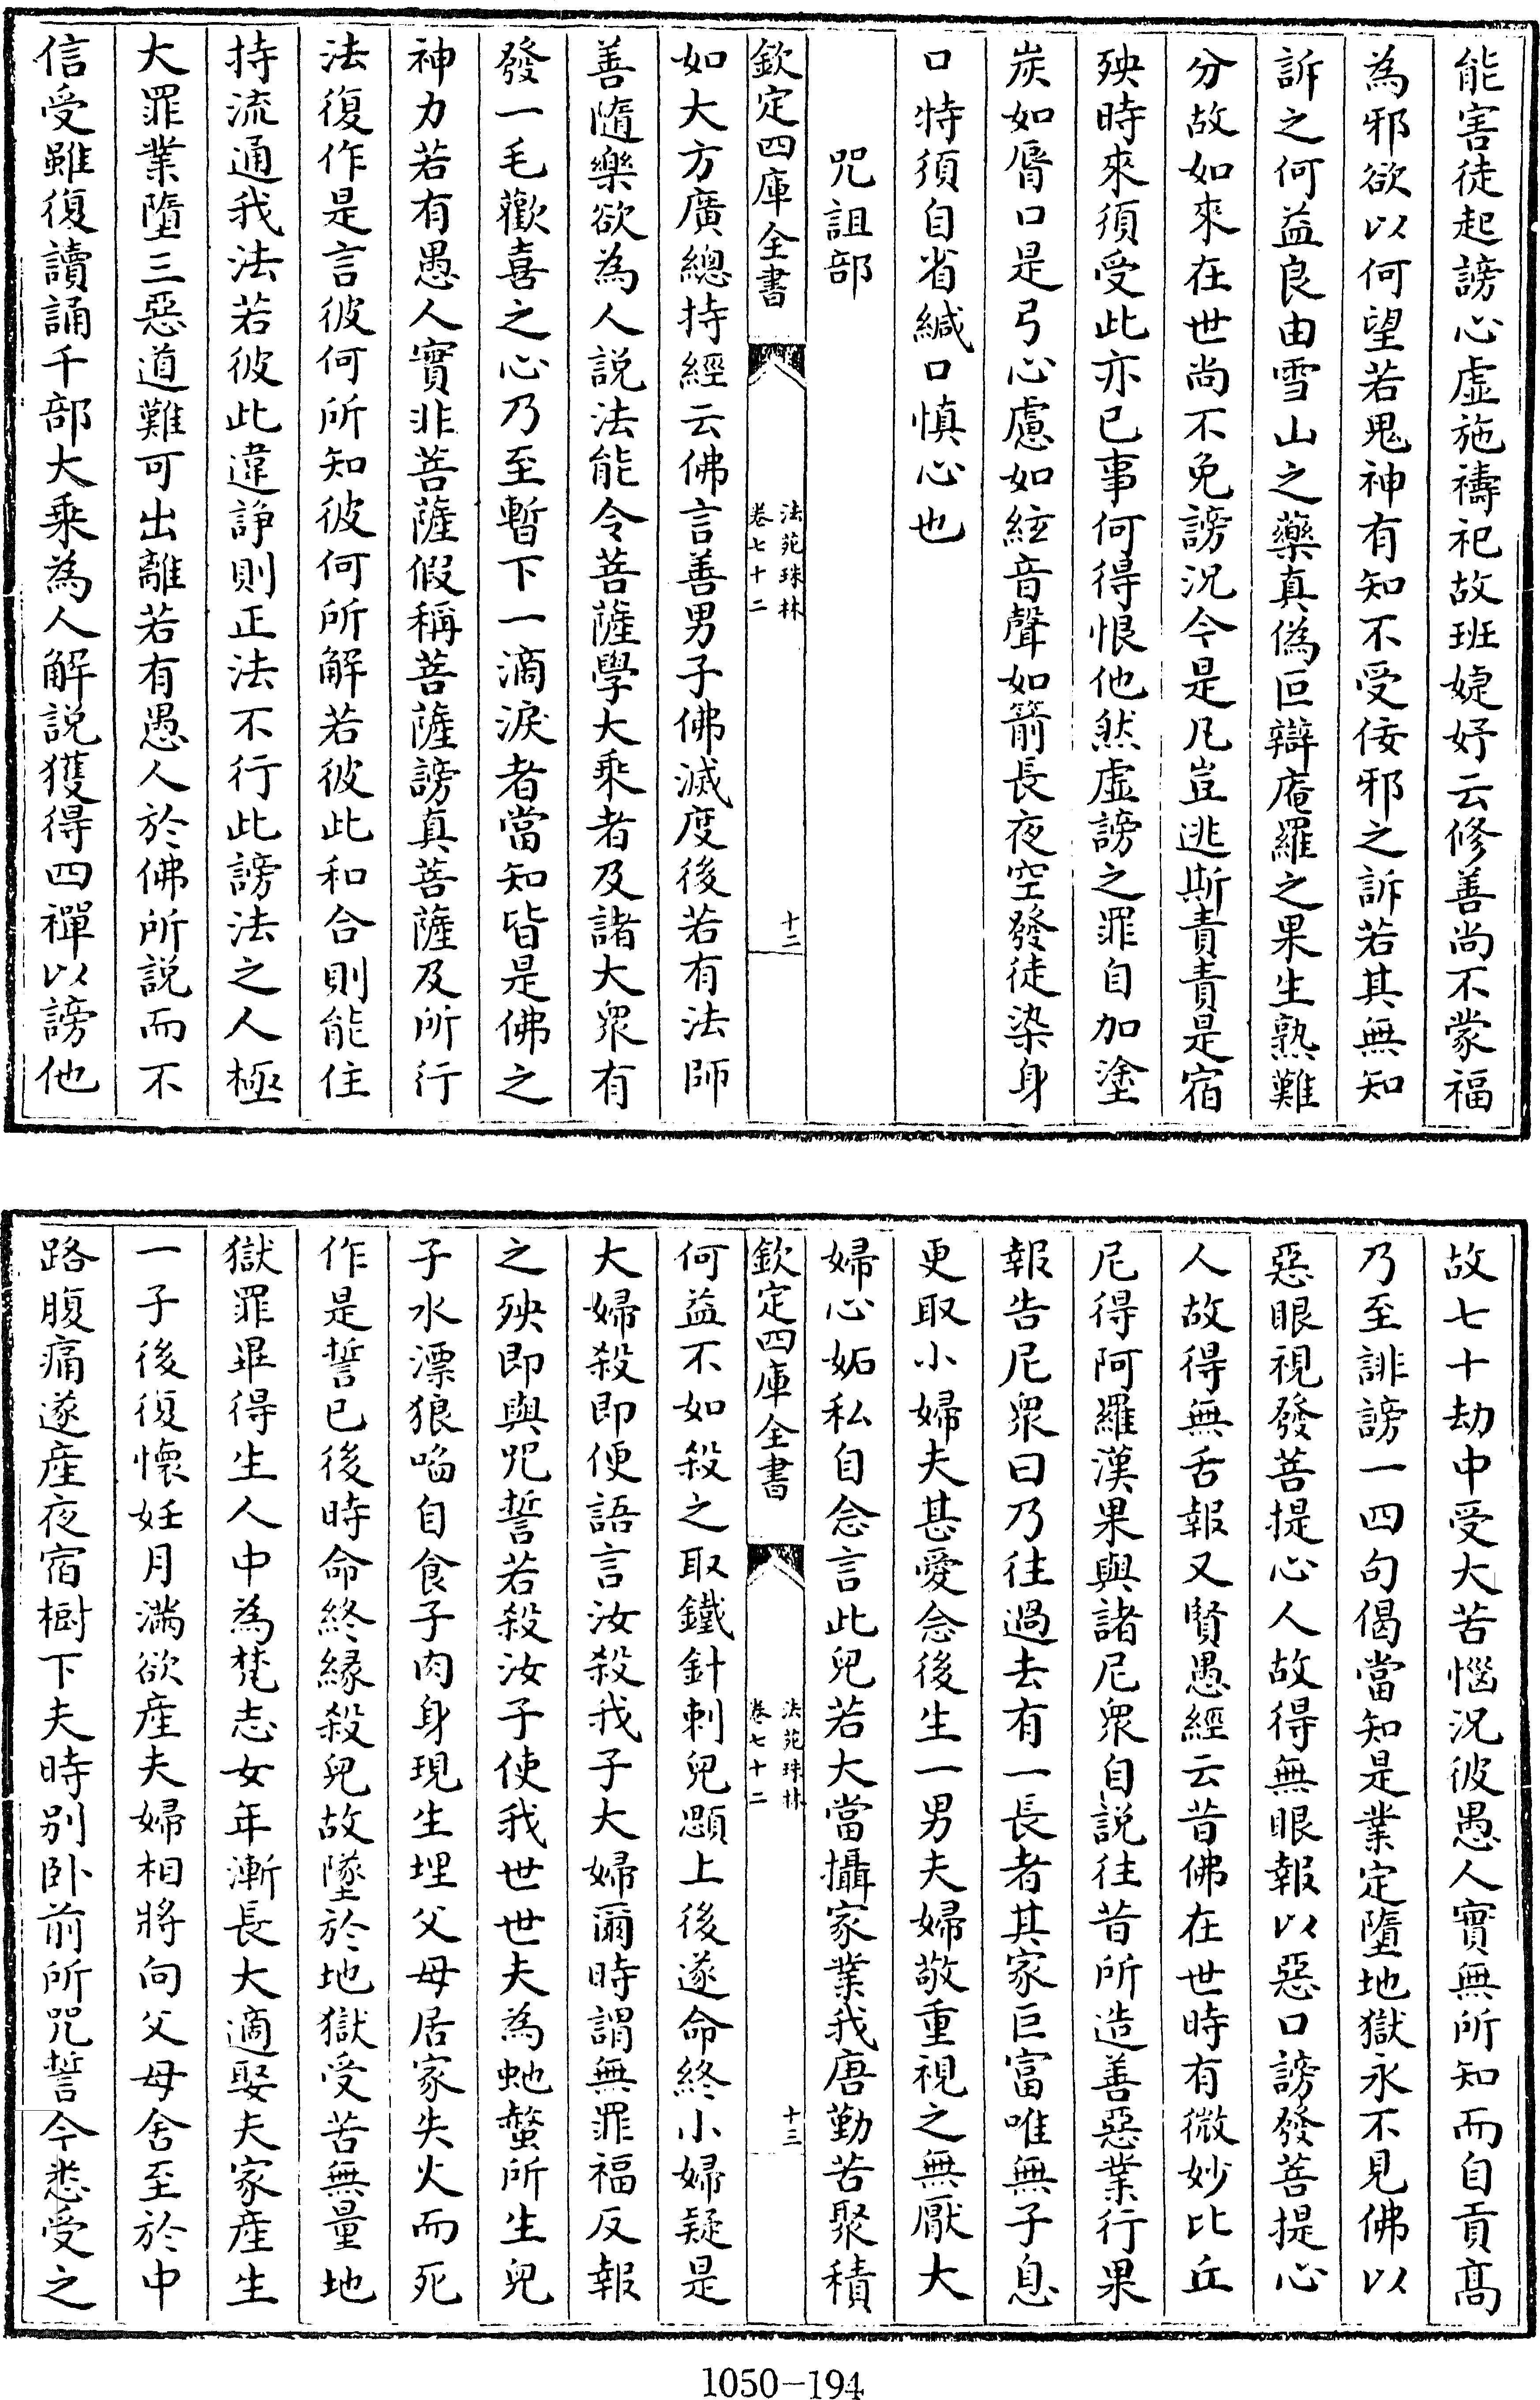 能害徒起謗心虛施禱祀故班婕妤云修善尚不蒙福
為邪欲以何望若鬼神有知不受佞邪之訴若其無知
訴之何益良由雪山之藥真偽叵辯庵羅之果生熟難
分故如來在世尚不免謗況今是凡豈逃斯責責是宿
殃時來須受此亦已事何得恨他然虛謗之罪自加塗
炭如脣口是弓心慮如絃音聲如箭長夜空發徒染身
口特須自省緘口慎心也
咒詛部
欽定四庫全書
法苑珠林
卷七十二
十二
如大方廣總持經云佛言善男子佛滅度後若有法師
善隨樂欲為人說法能令菩薩學大乘者及諸大眾有
發一毛歡喜之心乃至暫下一滴淚者當知皆是佛之
神力若有愚人實非菩薩假稱菩薩謗真菩薩及所行
法復作是言彼何所知彼何所解若彼此和合則能住
持流通我法若彼此違諍則正法不行此謗法之人極
大罪業墮三惡道難可出離若有愚人於佛所說而不
信受雖復讀誦千部大乘為人解說獲得四禪以謗他
故七十劫中受大苦惱況彼愚人實無所知而自貢高
乃至誹謗一四句偈當知是業定墮地獄永不見佛以
惡眼視發菩提心人故得無眼報以惡口謗發菩提心
人故得無舌報又賢愚經云昔佛在世時有微妙比丘
尼得阿羅漢果與諸尼眾自說往昔所造善惡業行果
報告尼眾曰乃往過去有一長者其家巨富唯無子息
更取小婦夫甚愛念後生一男夫婦敬重視之無厭大
婦心妬私自念言此兒若大當攝家業我唐勤苦聚積
欽定四庫全書
法苑珠林
卷七十二
十三
何益不如殺之取鐵針刺兒顋上後遂命終小婦疑是
大婦殺即便語言汝殺我子大婦爾時謂無罪福反報
之殃即與咒誓若殺汝子使我世世夫為虵螫所生兒
子水漂狼啗自食子肉身現生埋父母居家失火而死
作是誓已後時命終緣殺兒故墜於地獄受苦無量地
獄罪畢得生人中為梵志女年漸長大適娶夫家産生
一子後復懷妊月滿欲産夫婦相將向父母舍至於中
路腹痛遂産夜宿樹下夫時别卧前所咒誓今悉受之
1050-194